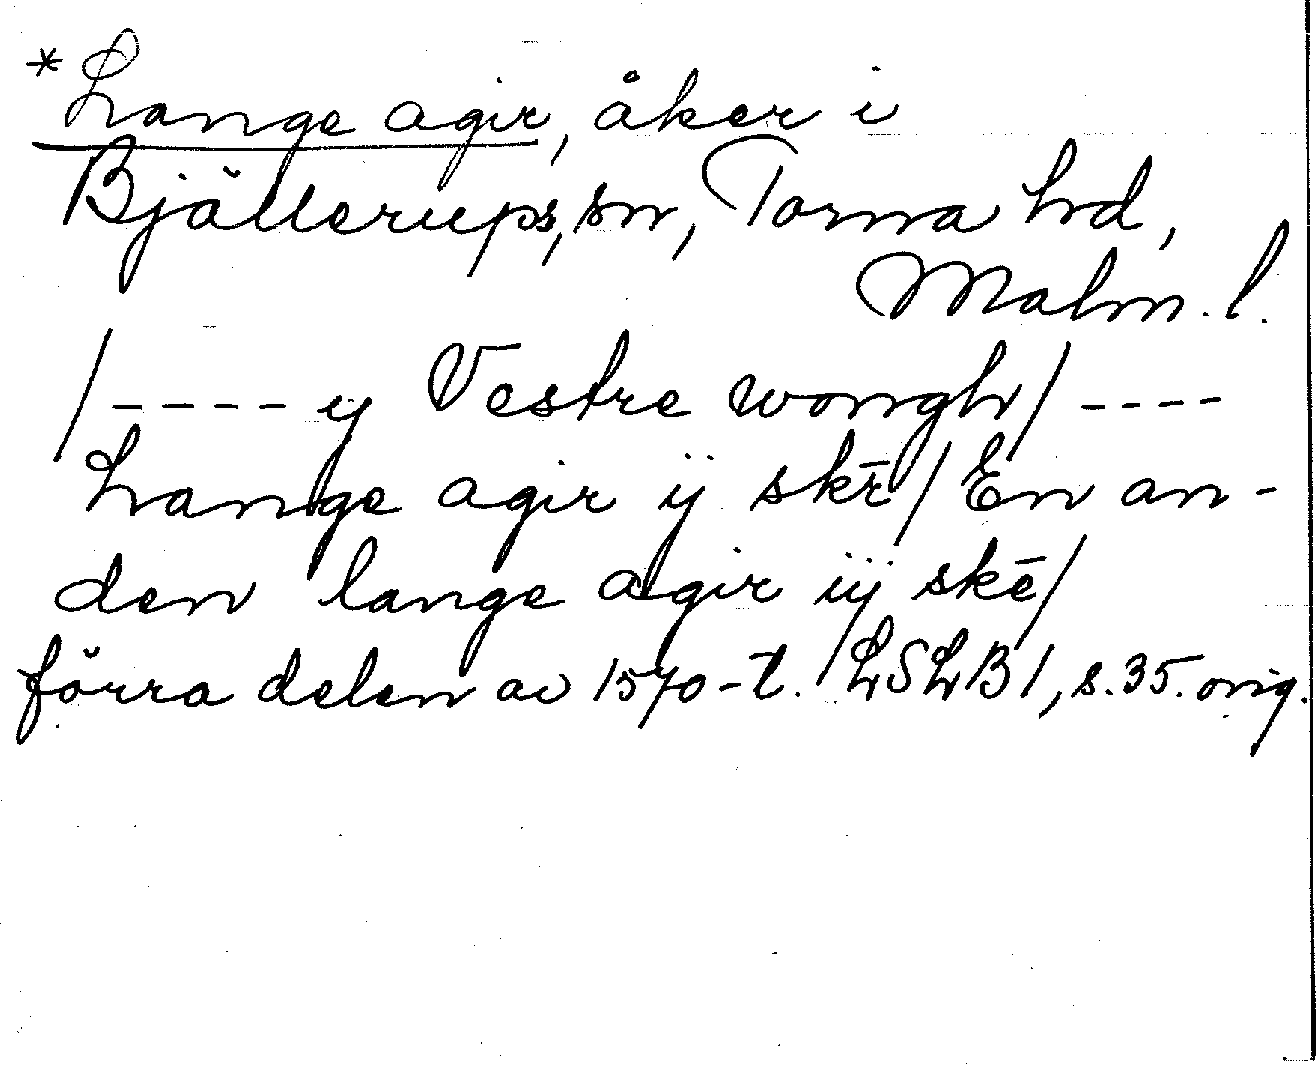 *Lange agir, åker i
Bjällerups, sn, Torna hd,
Malm. l.
/---- y Vestre wongh/ ----
Lange agir ij skē/ En an-
den lange agir iij skē/
förra delen av 1570-t. LSLB1, s.35. orig.